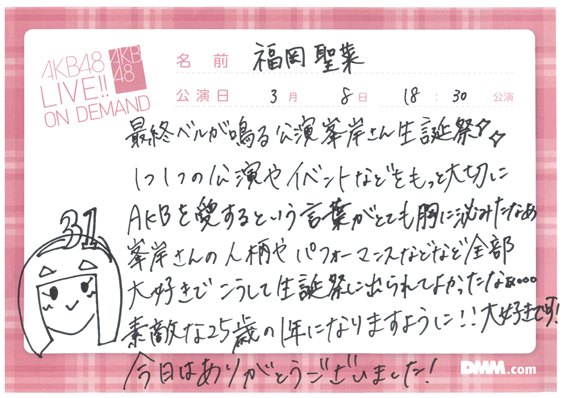 AKB48
LIVE!!
ON DEMAND
AKB
48
名前 福岡聖菜
公演日 3月 8日 18:30 公演
最終ベルが鳴る公演峯岸さん生誕祭
1つ1つの公演やイベントなどをもっと大切に
AKBを愛するという言葉がとても胸に泌みたなぁ
峯岸さんの人柄やパフォーマンスなどなど全部
大好きでこうして生誕祭に出られてよかったなぁ....
素敵な25歳の1年になりますように!!大好きです!
今日はありがとうございました!
31
DMM.com